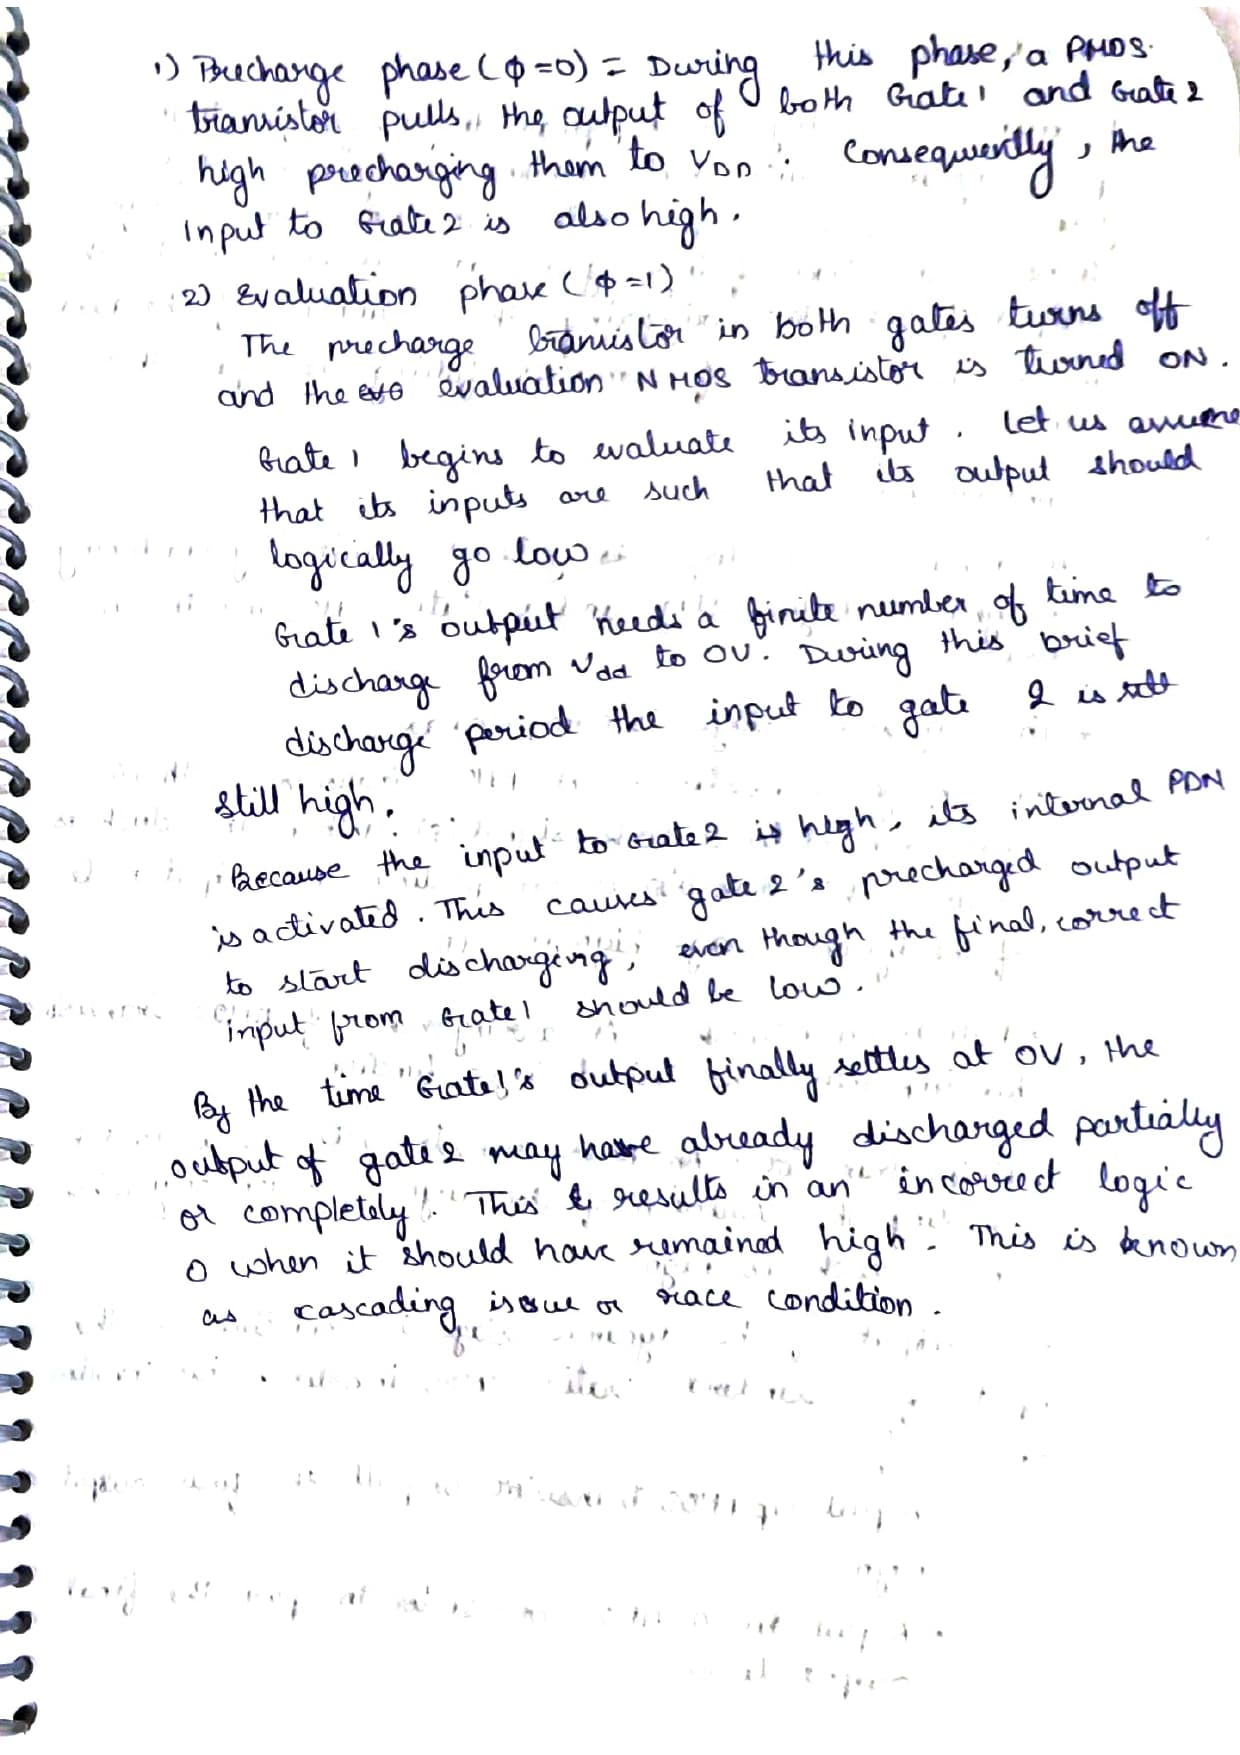 1) Precharge phase (ϕ=0) = During this phase, a PMOS.
transistor pulls the output of both Gate 1 and Gate 2
high precharging them to VDD. Consequently, the
input to Gate 2 is also high.
2) Evaluation phase (ϕ=1)
The precharge transistor in both gates turns off
and the evaluation NMOS transistor is turned ON.
Gate 1 begins to evaluate its input. Let us assume
that its inputs are such that its output should
logically go low
Gate 1's output needs a finite number of time to
discharge from Vdd to 0V. During this brief
discharge period the input to gate 2 is
still high.
Because the input to Gate 2 is high, its internal PDN
is activated. This causes gate 2's precharged output
to start discharging, even though the final, correct
input from Gate 1 should be low.
By the time Gate 1's output finally settles at 0V, the
output of gate 2 may have already discharged partially
or completely. This results in an incorrect logic
0 when it should have remained high. This is known
as cascading issue or race condition.